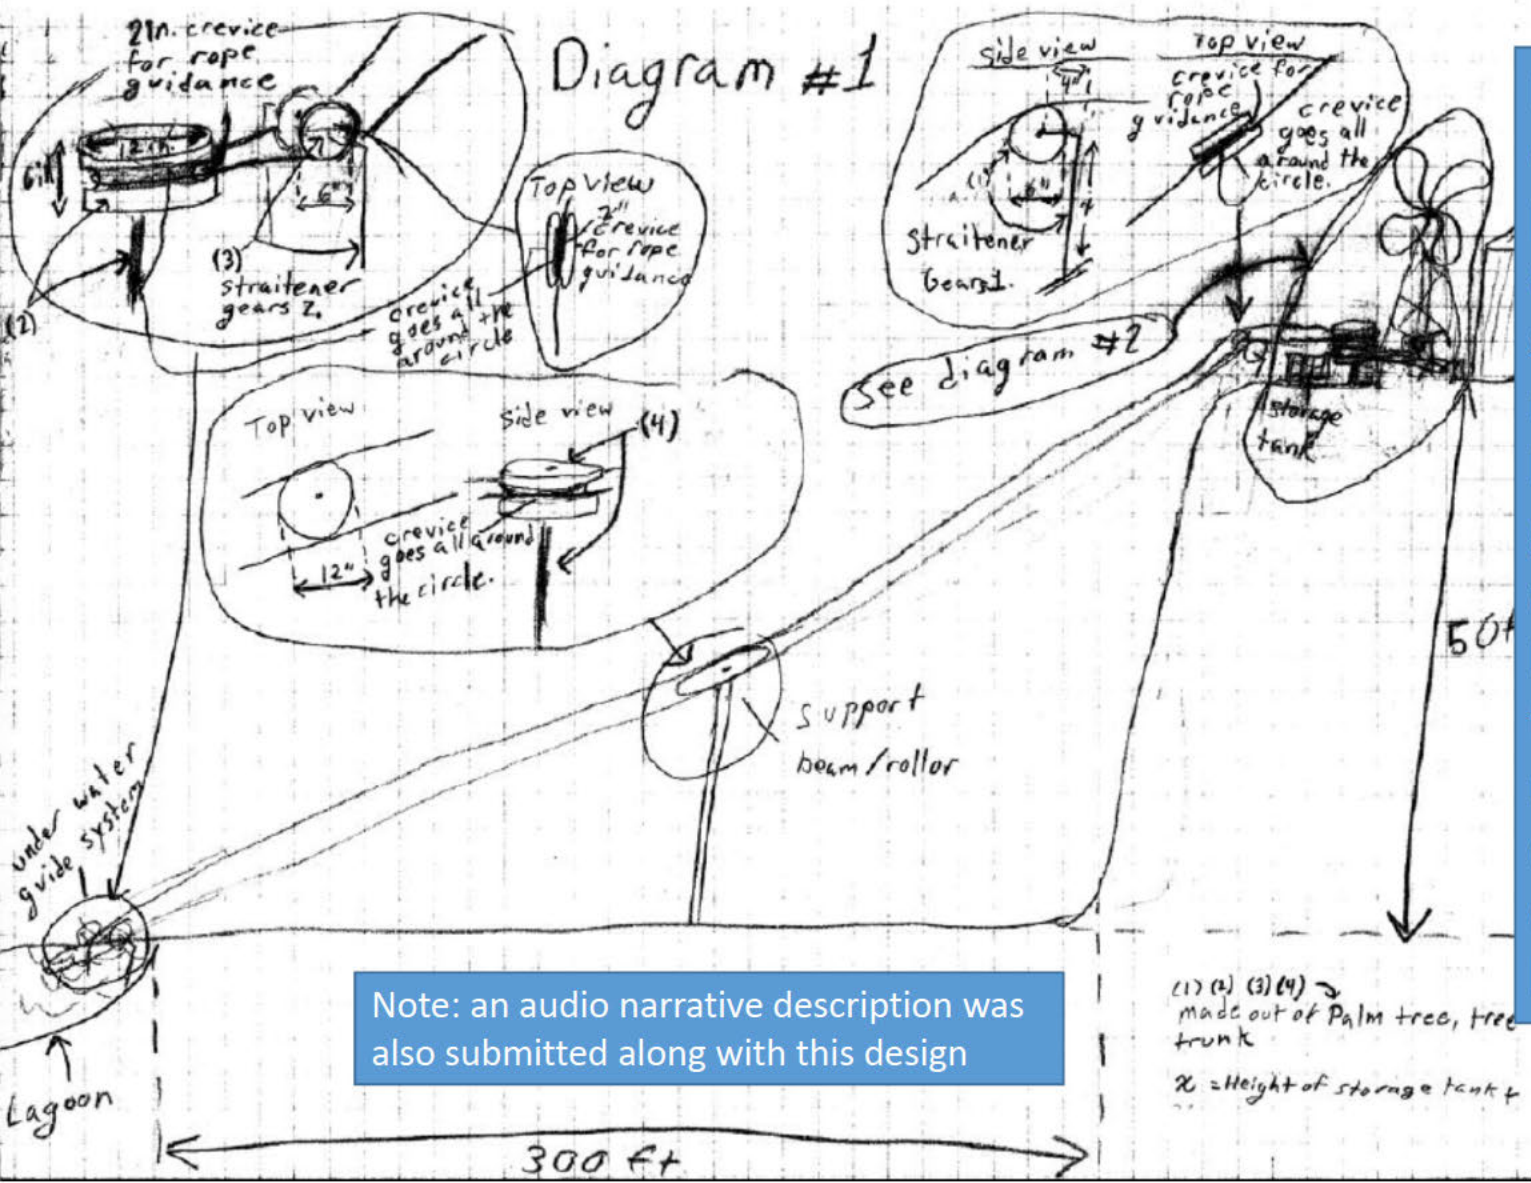 Diagram #1
2In. crevice
for rope
guidance
12 in.
6in
6"
(2)
(3)
straitener
gears 2.
Top view
2"
crevice
for rope
guidance
crevice
goes all
around the
circle
Side view
4"
(1)
6"
4
straitener
Gears1.
Top view
crevice for
rope
guidance
crevice
goes all
around the
circle.
See diagram #2
storage
tank
Top view
12"
Side view
(4)
crevice
goes all around
the circle.
support
beam/rollor
under water
guide system
Lagoon
50
300 ft
Note: an audio narrative description was
also submitted along with this design
(1) (2) (3) (4)
made out of Palm tree, tree
trunk
x = Height of storage tank +